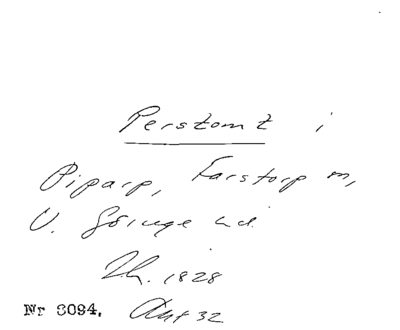 Perstomt i
Piparp, Farstorp m,
V. Göinge hd.
Th. 1828
Nr 8094. Ant 32